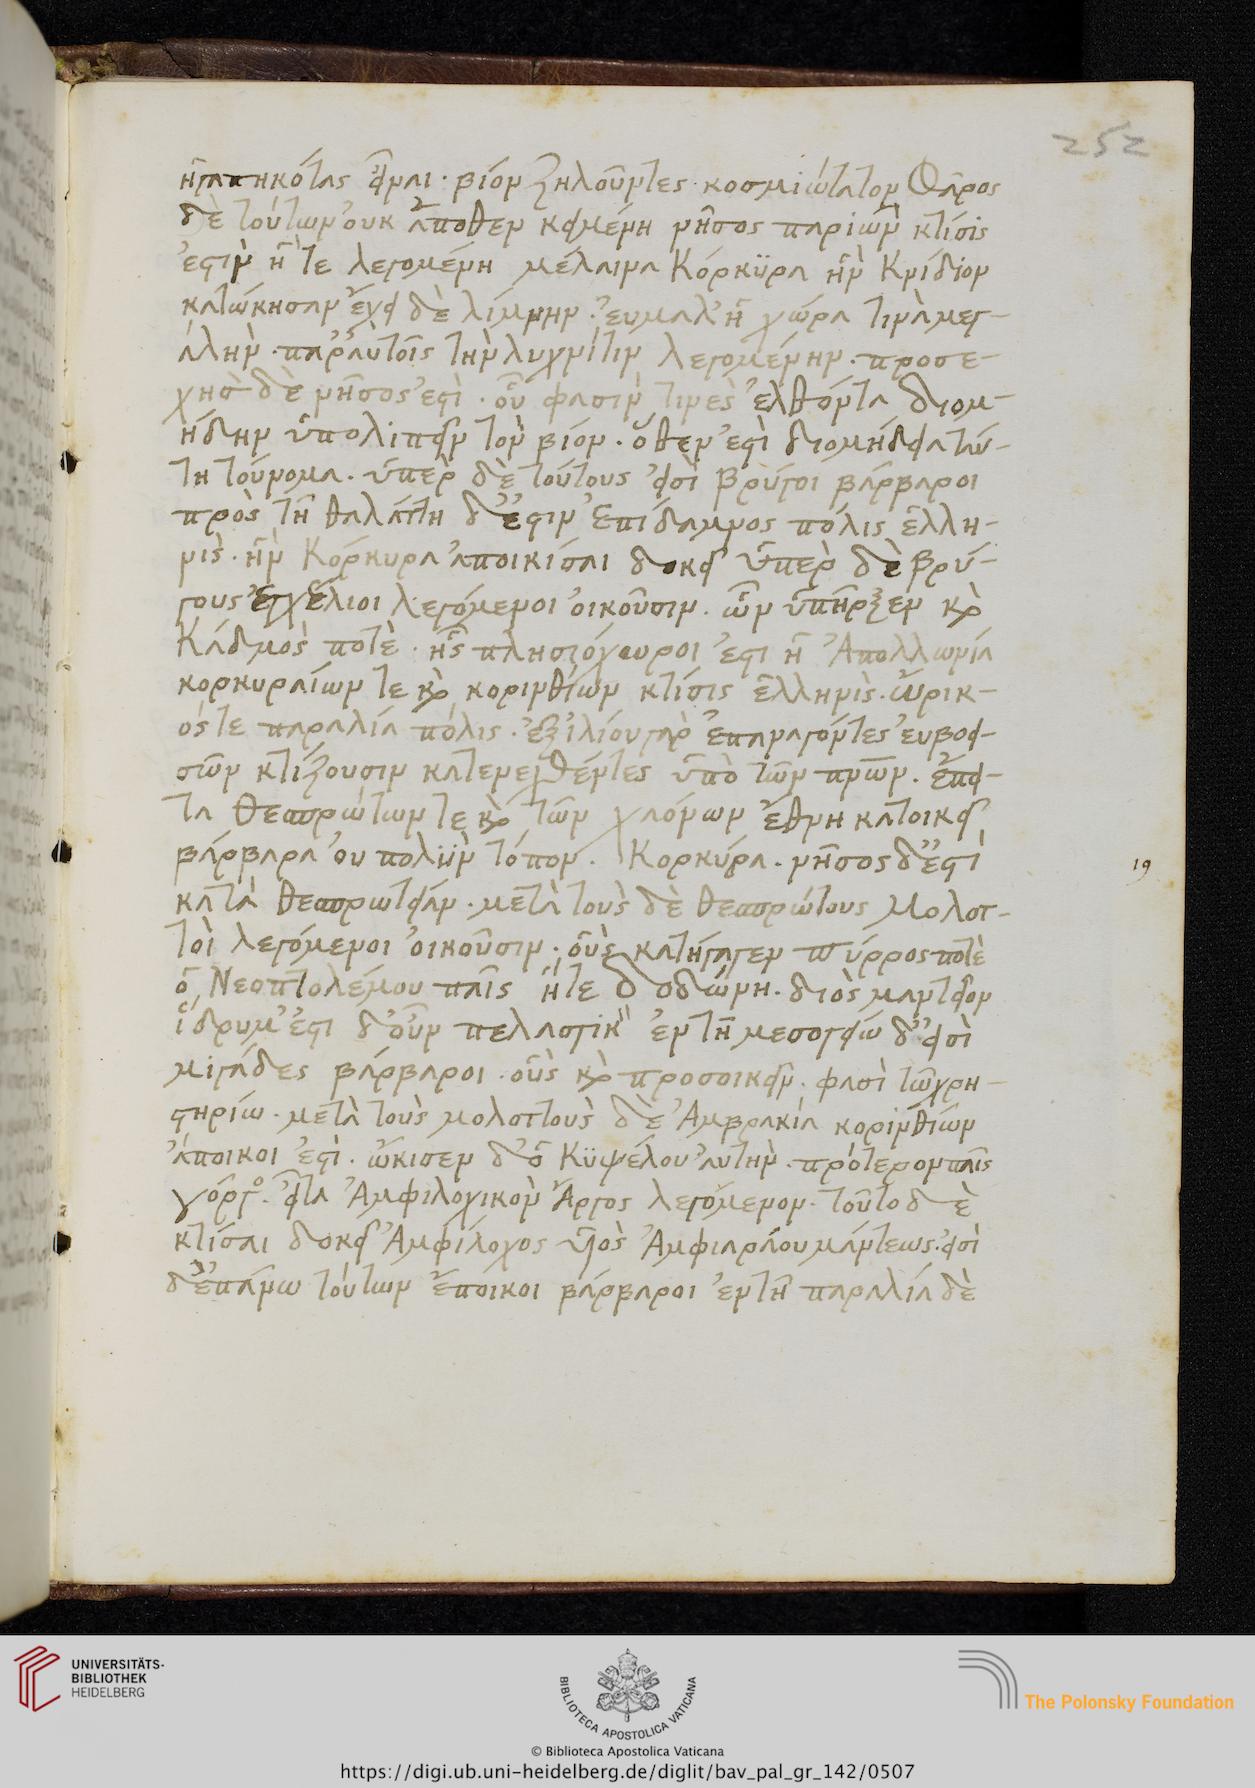 252
ἠγαπηκότας εἶναι· βίον ζηλοῦντες κοσμιώτατον Φᾶρος
δὲ τούτων οὐκ ἄποθεν κειμένη νῆσος παρίων κτίσις
ἐστὶν ἥ τε λεγομένη μέλαινα Κόρκϋρα ἣν Κνίδιοι
κατώκησαν ἔχει δὲ λίμνην· εὐμαλ' ἡ χώρα τινὰ μεγ-
άλην· παρ' αὐτοῖς τὴν λυχνίτιν λεγομένην· προσε-
χὴς δὲ νῆσος ἐστὶ· οὗ φασὶν τινὲς ἐλθόντα διομ-
ήδην ὑπολιπεῖν τὸν βίον· ὅθεν ἐστὶ διομήδεια ταύ-
τη τοὔνομα· ὑπὲρ δὲ τούτους εἰσὶ Βρύγοι βάρβαροι
πρὸς τῇ θαλάττη δ' ἔστιν Ἐπίδαμνος πόλις ἑλλη-
νὶς· ἣν Κόρκυρα ἀποικίσαι δοκεῖ ὑπὲρ δὲ βρύ-
γους ἐγχέλιοι λεγόμενοι οἰκοῦσιν· ὧν ὑπῆρξεν κὶ
Κάδμος ποτὲ· ἧς πλησιόχωροι ἐστι ἡ Ἀπολλωνία
κορκυραίων τε κὶ κορινθίων κτίσις ἑλληνὶς· ὠρικ-
ός τε παραλία πόλις· ἐξ ἰλίου γὰρ ἐπαναγόντες εὐβοει-
σῶν κτίζουσιν κατενεχθέντες ὑπὸ τῶν πνῶν· ἔπει-
τα Θεσπρώτων τε κὶ τῶν χαόνων ἔθνη κατοικεῖ
βάρβαρα οὐ πολὺν τόπον· Κορκύρα· νῆσος δ' ἐστὶ
19
κατὰ θεσπρωτείαν· μετὰ τοὺς δὲ θεσπρώτους Μολοτ-
τοὶ λεγόμενοι οἰκοῦσιν· οὓς κατήγαγεν πύρρος ποτὲ
ὁ Νεοπτολέμου παῖς ἥ τε Δοδώνη· διὸς μαντεῖον
ἵδρυμ' ἐστι δ' οὖν πελαστικὸν ἐν τῇ μεσογείω δ' εἰσὶ
μιγάδες βάρβαροι· οὓς κὶ προσοικεῖν· φασὶ τῶ χρη-
στηρίω· μετὰ τοὺς μολοττοὺς δὲ Ἀμβρακία κορινθίων
ἄποικοι ἐστὶ· ὤκισεν δ' ὁ Κϋψέλου αὐτὴν· πρότερον παῖς
γόργο· εἶτα Ἀμφιλοχικὸν Ἄργος λεγόμενον· τοῦτο δὲ
κτίσαι δοκεῖ Ἀμφίλοχος υἱὸς Ἀμφιαράου μάντεως· εἰσὶ
δ' ἐπάνω τούτων ἔποικοι βάρβαροι ἐν τῇ παραλία δὲ
UNIVERSITÄTS-
BIBLIOTHEK
HEIDELBERG
BIBLIOTECA APOSTOLICA VATICANA
The Polonsky Foundation
© Biblioteca Apostolica Vaticana
https://digi.ub.uni-heidelberg.de/diglit/bav_pal_gr_142/0507